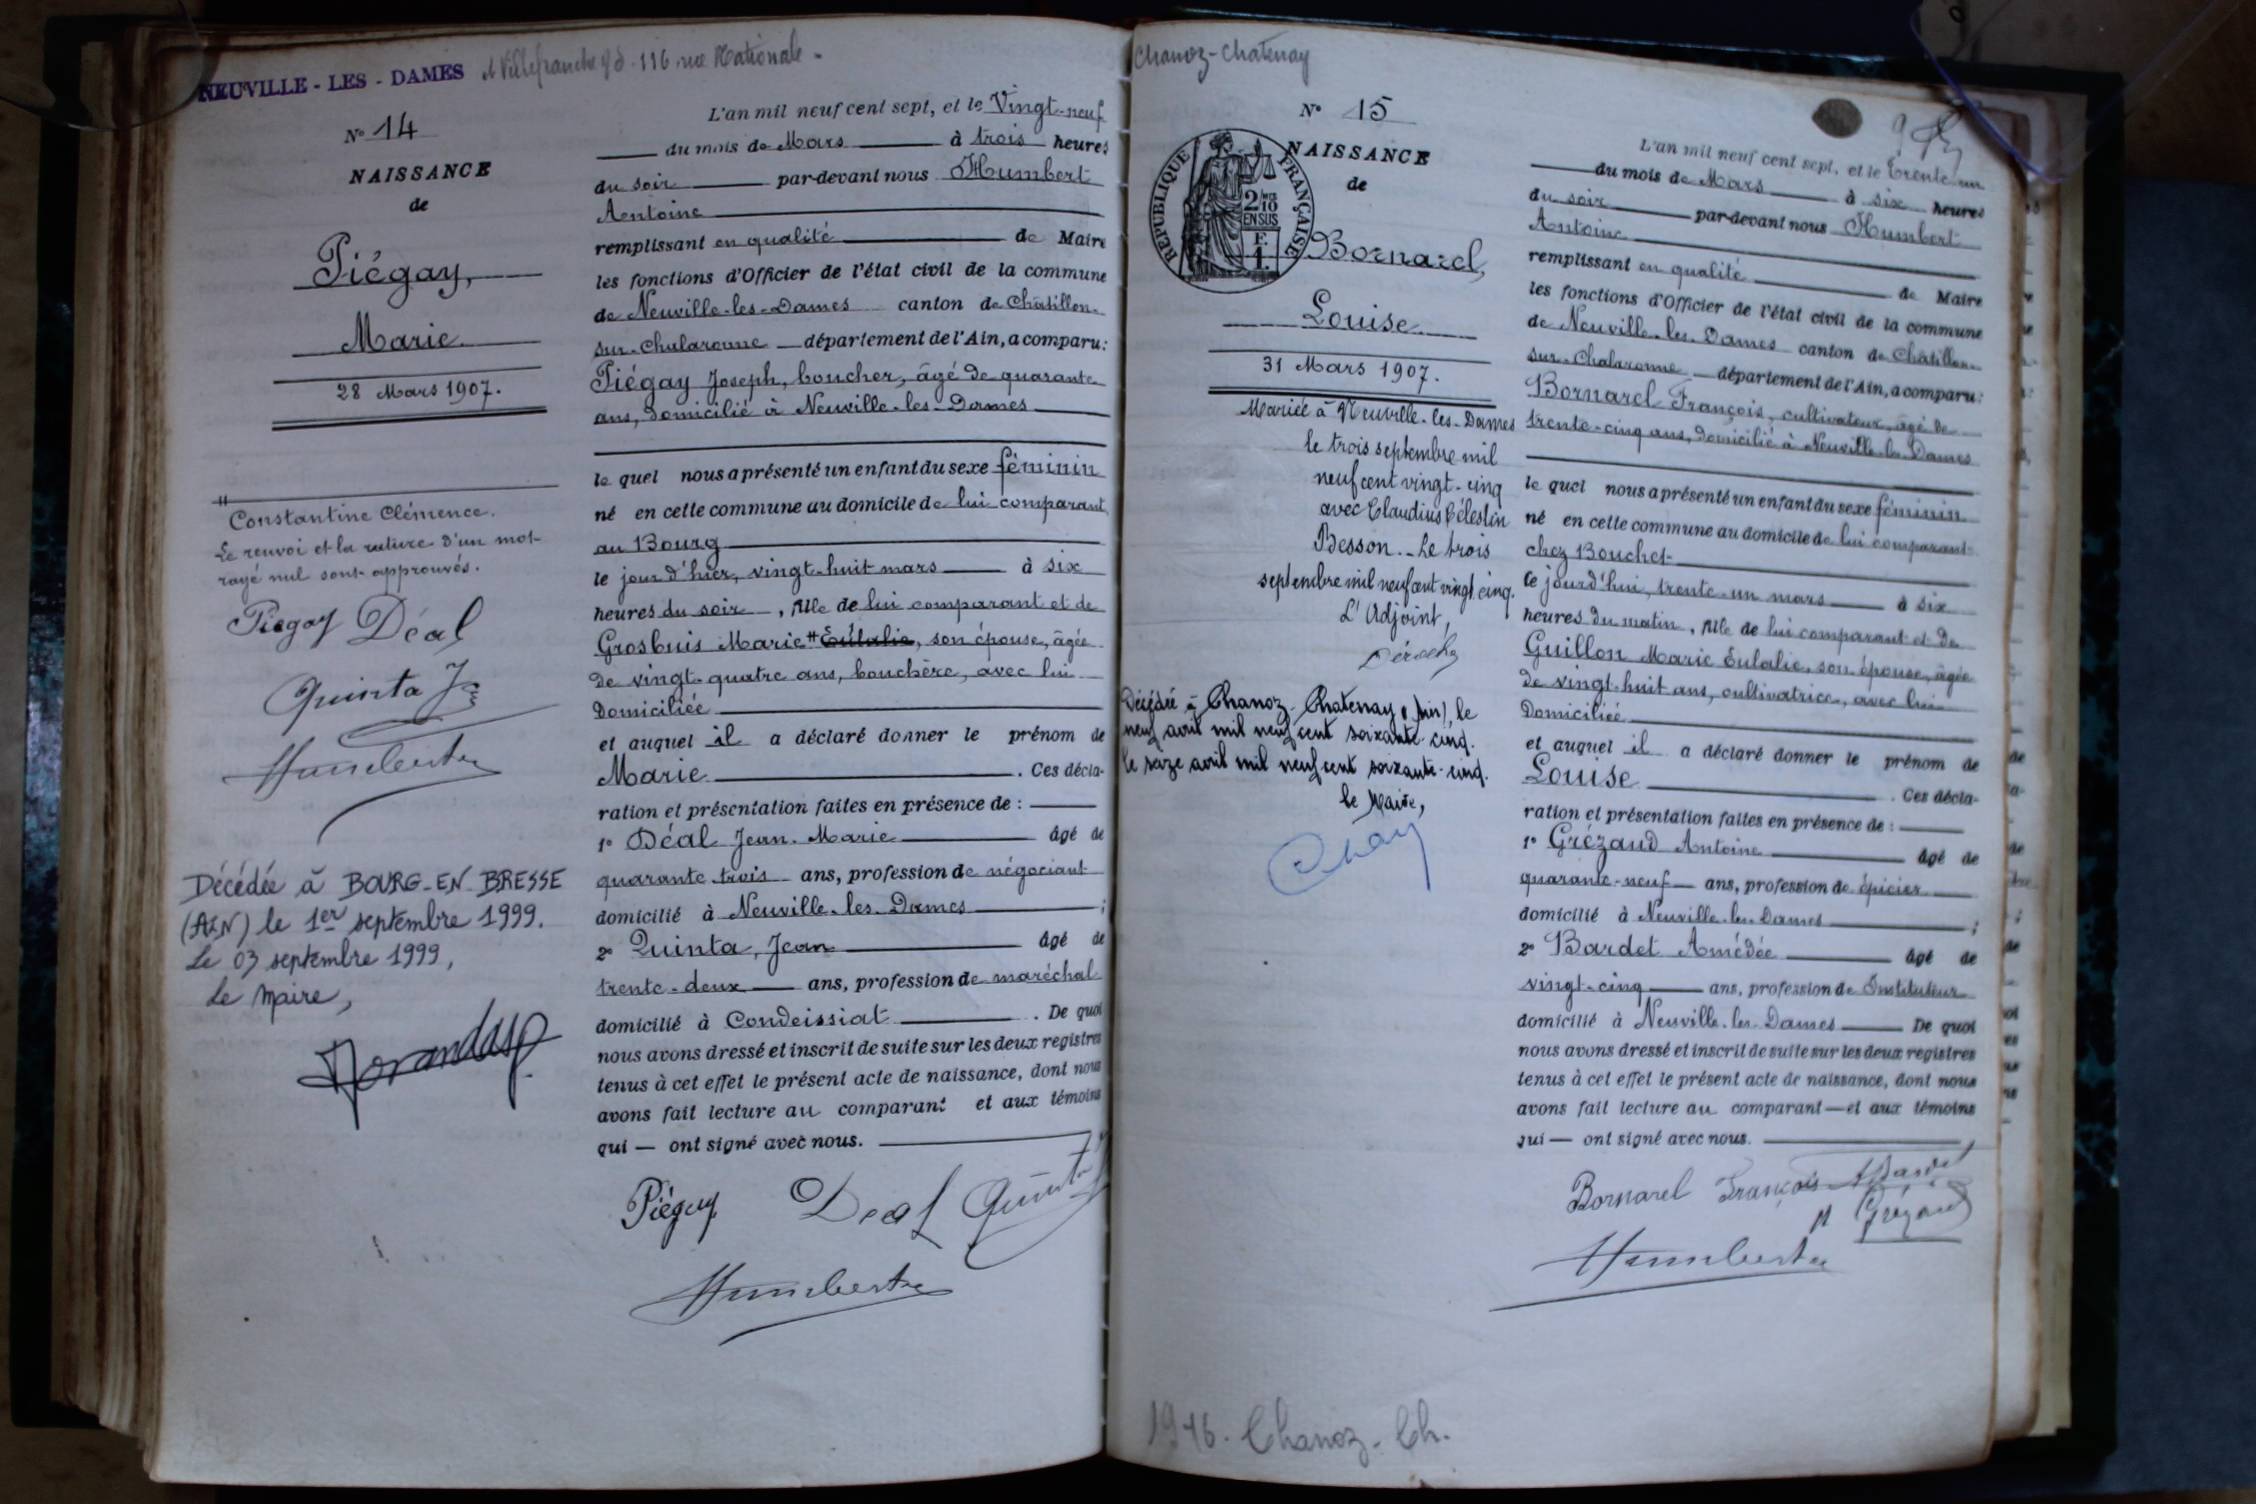 NEUVILLE - LES - DAMES
A Villefranche 116 rue Nationale -
Nº 14
NAISSANCE
de
Piégay,
Marie
28 Mars 1907.
# Constantine Clémence.
Le renvoi et la rature d'un mot
rayé nul sont approuvés.
Piégay Déal
Quinta J
Humbert
Décédée à BOURG-EN-BRESSE
(AIN) le 1er septembre 1999.
Le 03 septembre 1999,
Le Maire,
L'an mil neuf cent sept, et le Vingt-neuf
du mois de Mars à trois heures
du soir par-devant nous Humbert
Antoine
remplissant en qualité de Maire
les fonctions d'Officier de l'état civil de la commune
de Neuville-les-Dames canton de Châtillon-
sur-Chalaronne département de l'Ain, a comparu:
Piégay Joseph, boucher, âgé de quarante
ans, domicilié à Neuville-les-Dames
le quel nous a présenté un enfant du sexe féminin
né en cette commune au domicile de lui comparant
au Bourg
le jour d'hier, vingt-huit mars à six
heures du soir, fille de lui comparant et de
Grosbuis Marie # Eulalie, son épouse, âgée
de vingt-quatre ans, bouchère, avec lui
domiciliée
et auquel il a déclaré donner le prénom de
Marie. Ces décla-
ration et présentation faites en présence de :
1º Déal Jean-Marie âgé de
quarante-trois ans, profession de négociant
domicilié à Neuville-les-Dames ;
2º Quinta, Jean âgé de
trente-deux ans, profession de maréchal
domicilié à Condeissiat. De quoi
nous avons dressé et inscrit de suite sur les deux registres
tenus à cet effet le présent acte de naissance, dont nous
avons fait lecture au comparant et aux témoins
qui — ont signé avec nous.
Piégay Déal Quinta J
Humbert
Chanoz-Chatenay
Nº 15
NAISSANCE
de
REPUBLIQUE FRANÇAISE
2/10
EN SUS
F.
1.
Bornarel,
Louise
31 Mars 1907.
Mariée à Neuville-les-Dames
le trois septembre mil
neuf cent vingt-cinq
avec Claudius Célestin
Besson. - Le trois
septembre mil neuf cent vingt cinq.
L'Adjoint,
Décédée à Chanoz-Chatenay (Ain), le
neuf avril mil neuf cent soixante-cinq.
le seize avril mil neuf cent soixante-cinq.
le Maire,
L'an mil neuf cent sept, et le Trente-un
du mois de Mars à six heures
du soir par-devant nous Humbert
Antoine
remplissant en qualité de Maire
les fonctions d'Officier de l'état civil de la commune
de Neuville-les-Dames canton de Châtillon-
sur-Chalaronne département de l'Ain, a comparu:
Bornarel François, cultivateur, âgé de
trente-cinq ans, domicilié à Neuville-les-Dames
le quel nous a présenté un enfant du sexe féminin
né en cette commune au domicile de lui comparant
chez Bouchet
ce jourd'hui, trente-un mars à six
heures du matin, fille de lui comparant et de
Guillon Marie Eulalie, son épouse, âgée
de vingt-huit ans, cultivatrice, avec lui
domiciliée
et auquel il a déclaré donner le prénom de
Louise. Ces décla-
ration et présentation faites en présence de :
1º Grézaud Antoine âgé de
quarante-neuf ans, profession de épicier
domicilié à Neuville-les-Dames ;
2º Bardet Amédée âgé de
vingt-cinq ans, profession de Instituteur
domicilié à Neuville-les-Dames De quoi
nous avons dressé et inscrit de suite sur les deux registres
tenus à cet effet le présent acte de naissance, dont nous
avons fait lecture au comparant — et aux témoins
qui — ont signé avec nous.
Bornarel François A Bardet
Grézaud
Humbert
Chanoz-Ch.